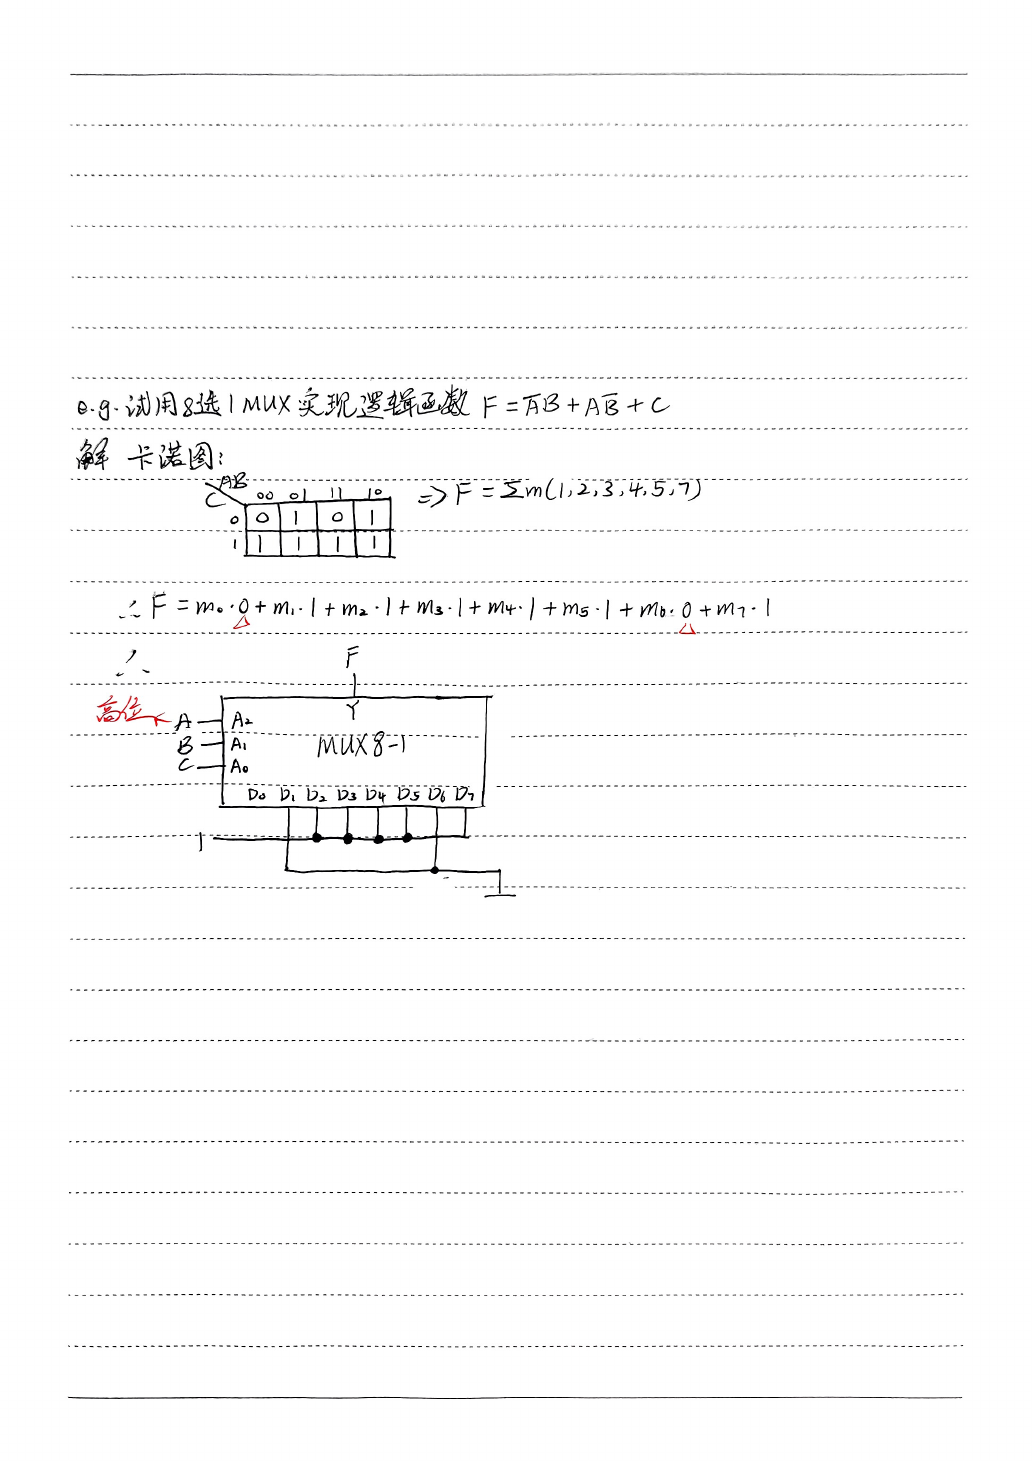 e.g. 试用8选1 MUX 实现逻辑函数 F = A̅B + AB̅ + C
解 卡诺图:
AB
C 00 01 11 10
0 0 1 0 1
1 1 1 1 1
=> F = Σm(1,2,3,4,5,7)
∴ F = m₀·0 + m₁·1 + m₂·1 + m₃·1 + m₄·1 + m₅·1 + m₆·0 + m₇·1
∴ F
高位 A A₂ Y
B A₁ MUX 8-1
C A₀
D₀ D₁ D₂ D₃ D₄ D₅ D₆ D₇
1